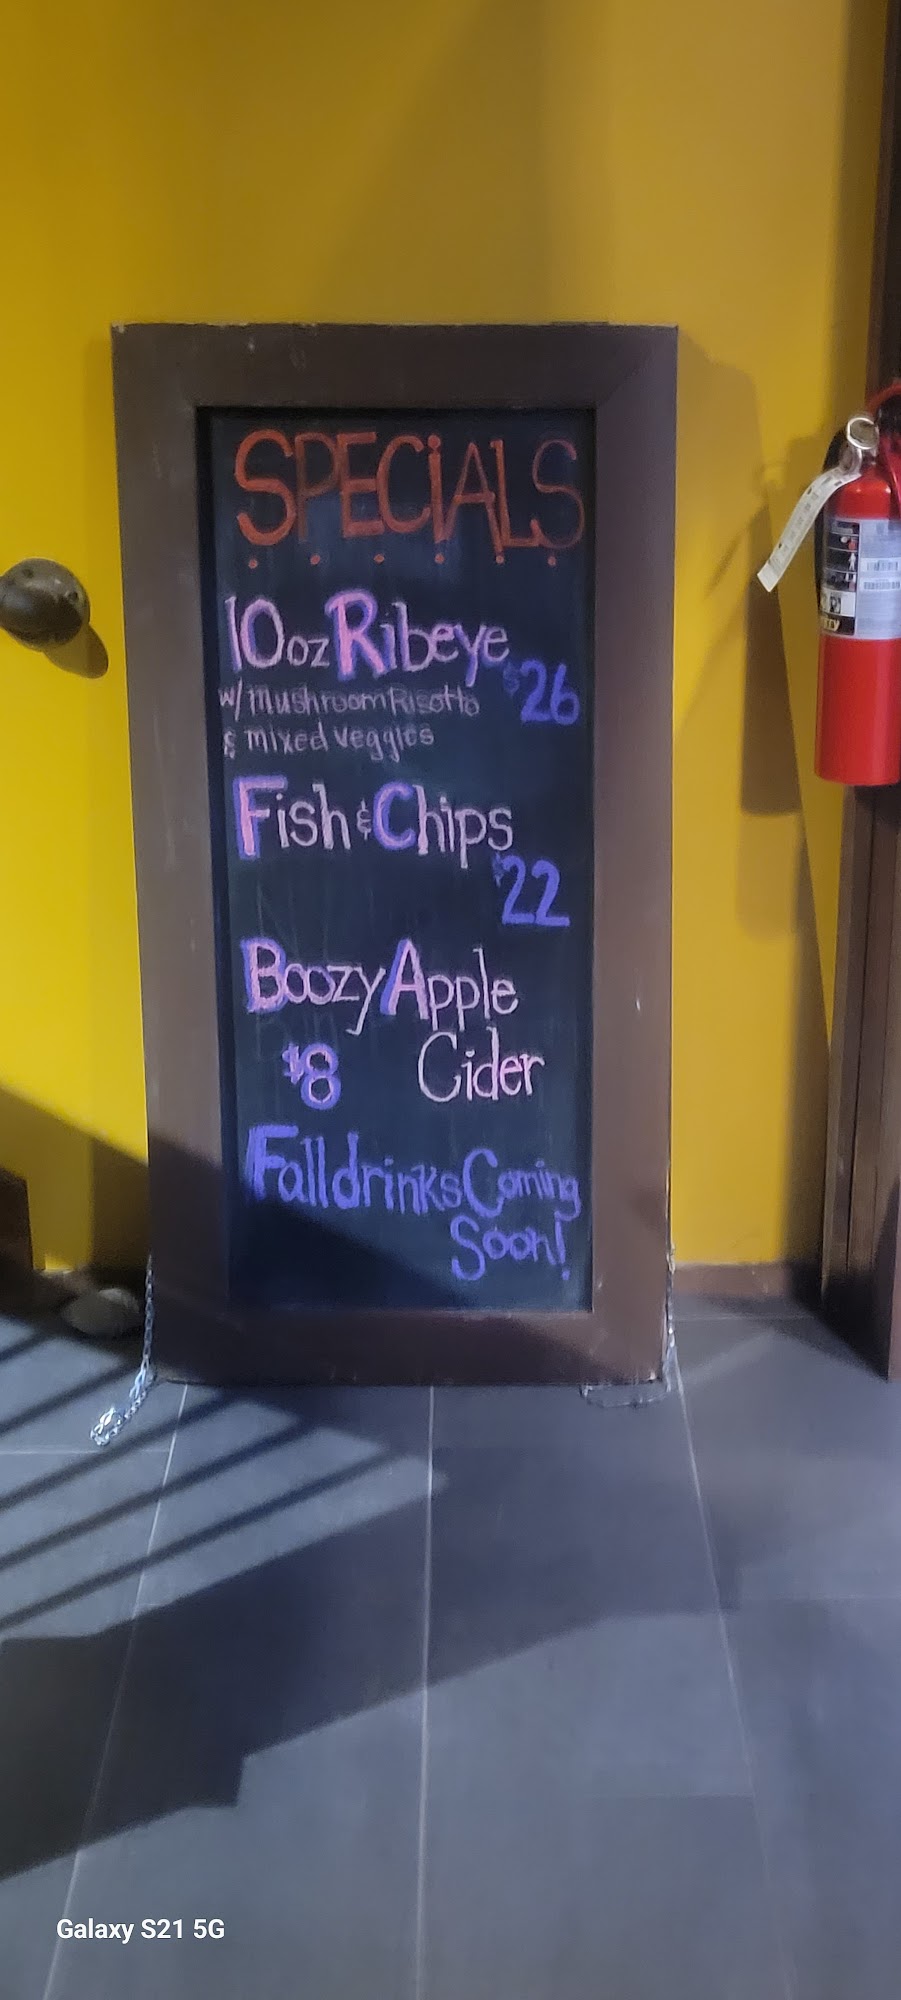 SPECiALS
10oz Ribeye
w/ Mushroom Risotto
$26
& mixed veggies
Fish & Chips
$22
Boozy Apple
$8 Cider
Fall drinks Coming
Soon!
Galaxy S21 5G